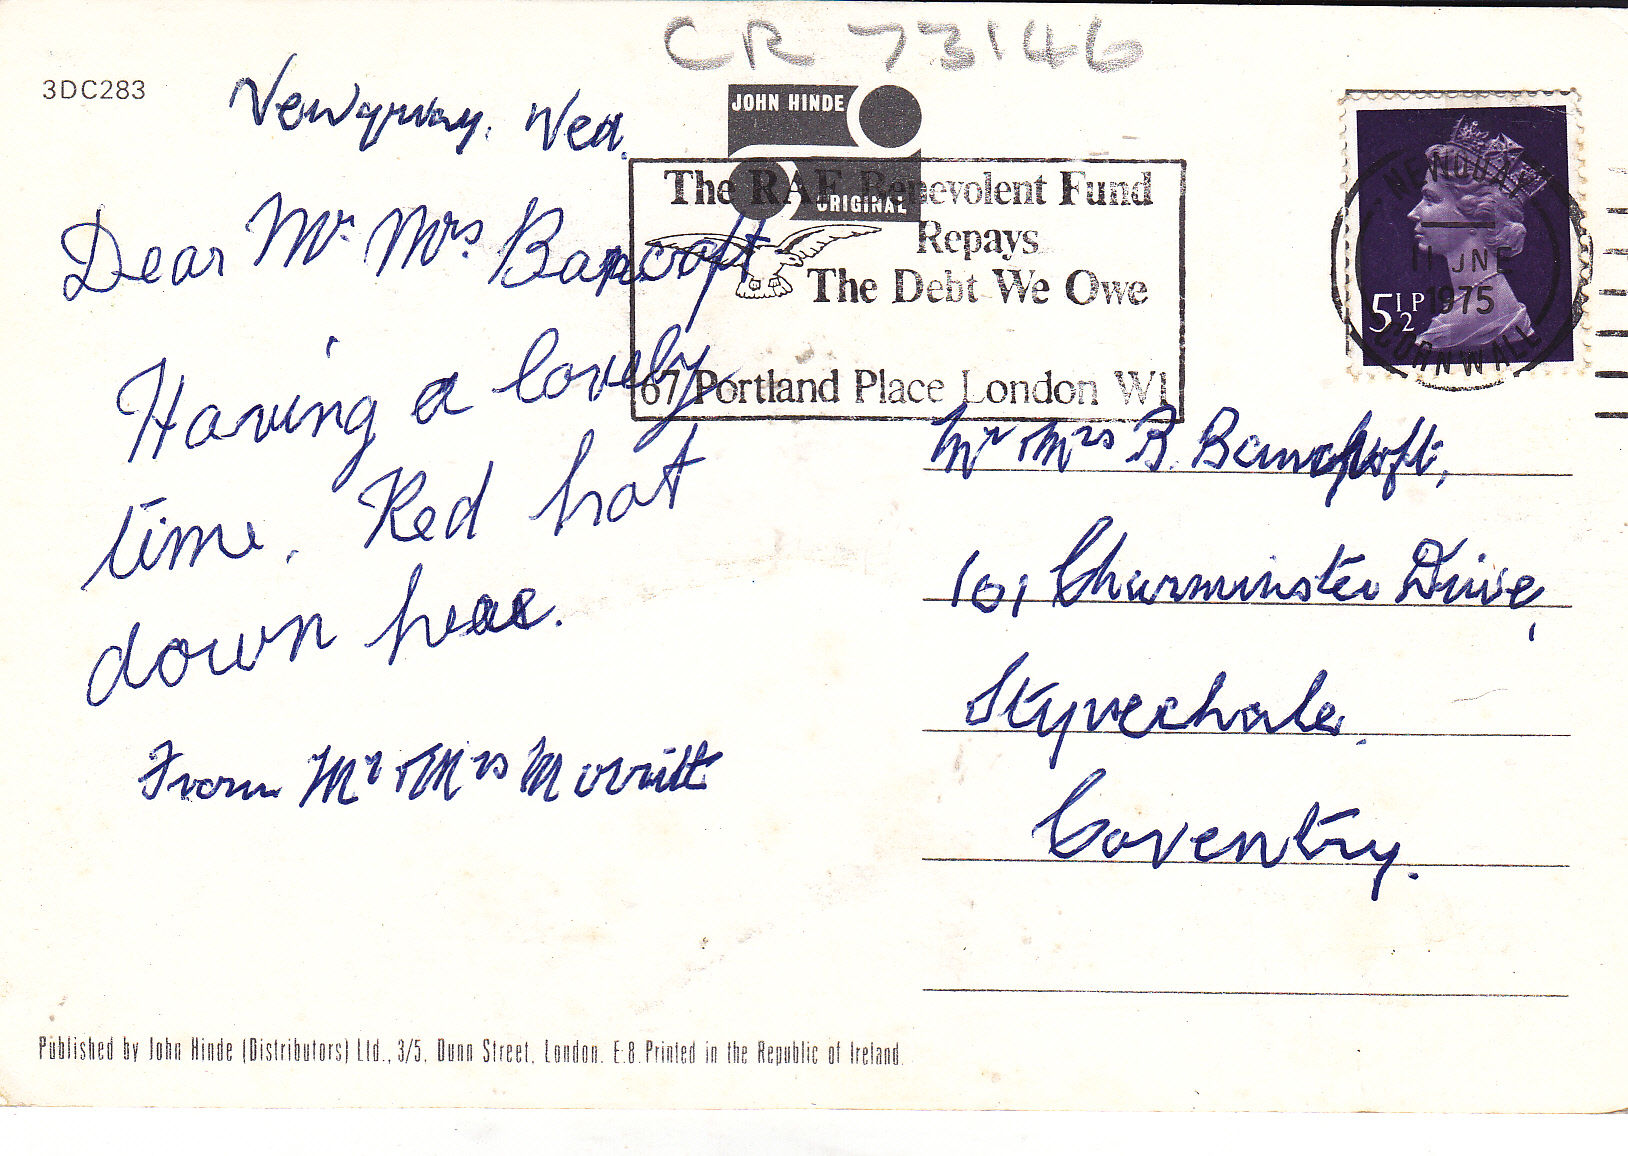 CR 73146
3DC283
JOHN HINDE
ORIGINAL
Newquay. Wed.
Dear Mr Mrs Bancroft
Having a lovely
time. Red hot
down here.
From Mr & Mrs Morritt
The RAF Benevolent Fund
Repays
The Debt We Owe
67 Portland Place London W1
NEWQUAY
11 JNE
1975
CORNWALL
5½P
Mr & Mrs B. Bancroft,
101 Charminster Drive,
Styvechale.
Coventry.
Published by John Hinde (Distributors) Ltd., 3/5, Dunn Street, London. E.8. Printed in the Republic of Ireland.